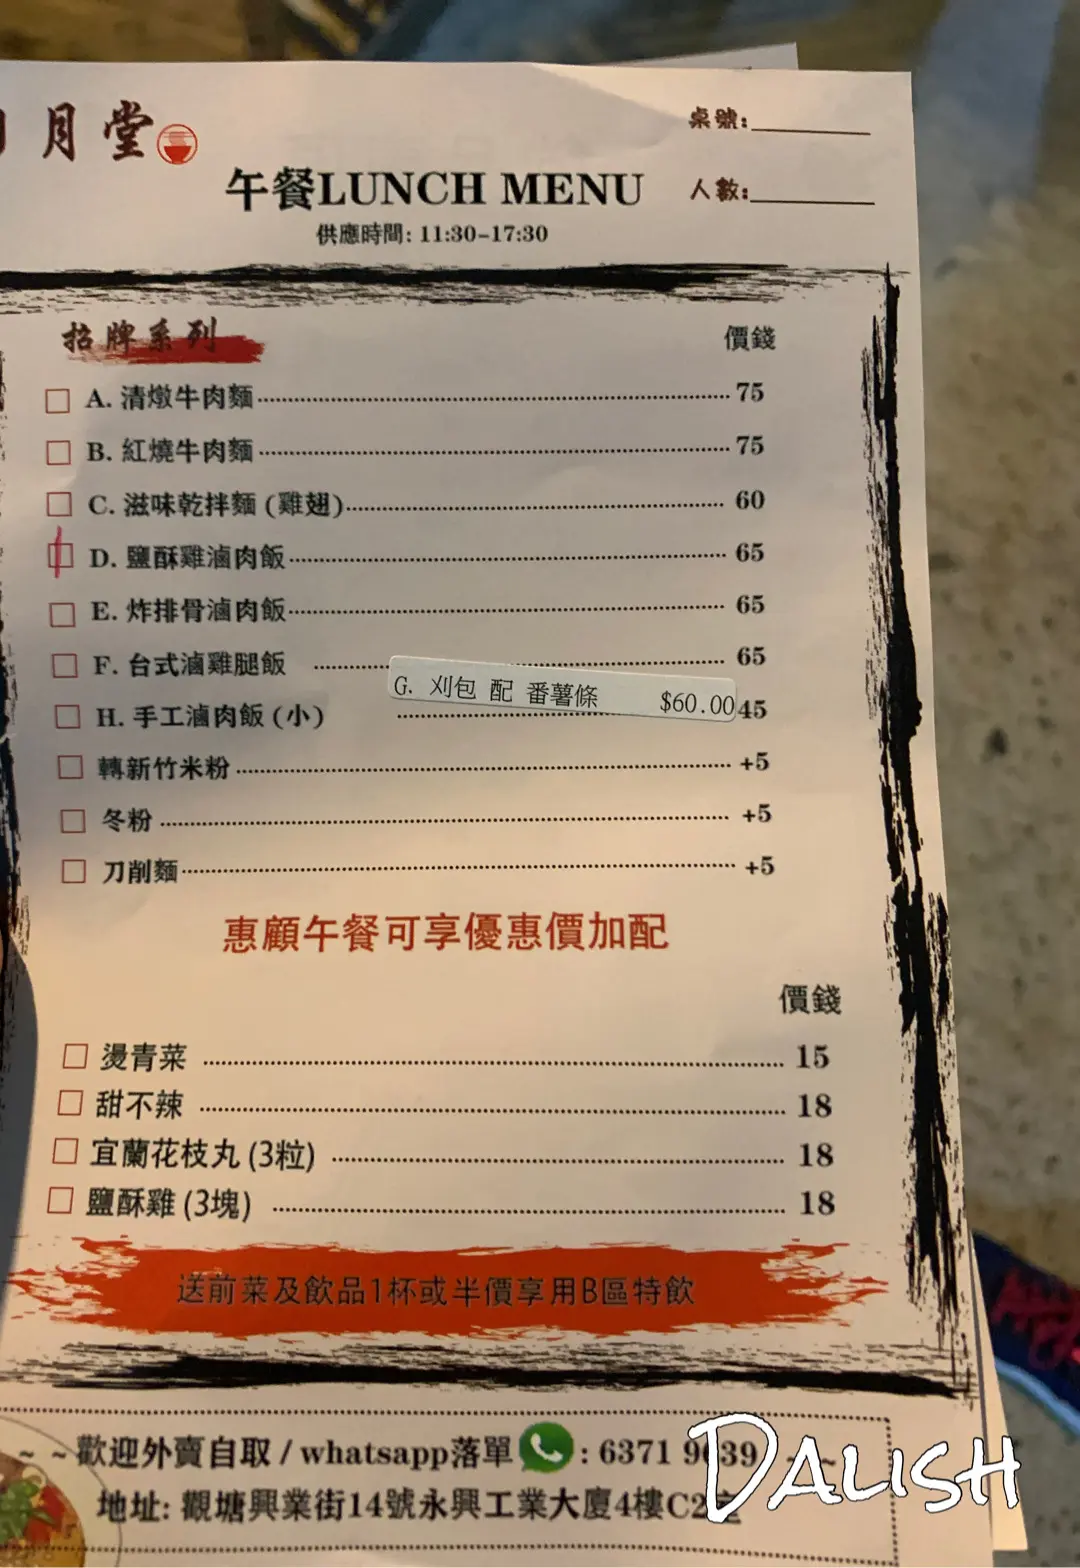 月堂
桌號:
午餐LUNCH MENU
人數:
供應時間: 11:30-17:30
招牌系列 價錢
A. 清燉牛肉麵 75
B. 紅燒牛肉麵 75
C. 滋味乾拌麵 (雞翅) 60
D. 鹽酥雞滷肉飯 65
E. 炸排骨滷肉飯 65
F. 台式滷雞腿飯 65
G. 刈包 配 番薯條 $60.00
H. 手工滷肉飯 (小) 45
轉新竹米粉 +5
冬粉 +5
刀削麵 +5
惠顧午餐可享優惠價加配
價錢
燙青菜 15
甜不辣 18
宜蘭花枝丸 (3粒) 18
鹽酥雞 (3塊) 18
送前菜及飲品1杯或半價享用B區特飲
~ ~ 歡迎外賣自取 / whatsapp落單 : 6371 9639 ~ ~
地址: 觀塘興業街14號永興工業大廈4樓C2室
DALISH